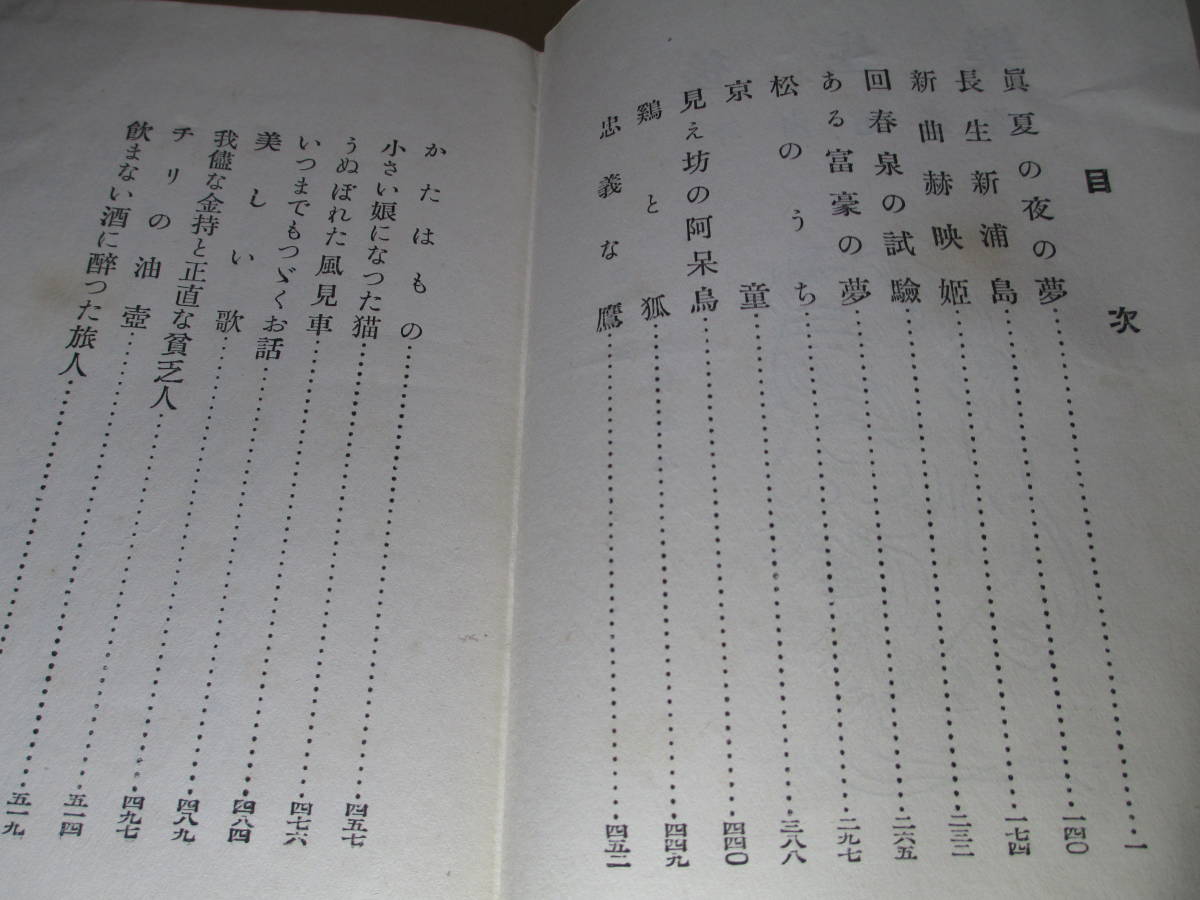 目次
眞夏の夜の夢……一
長生新浦島……一四〇
新曲赫映姫……一七四
回春泉の試驗……二三二
ある富豪の夢……二六五
松のうち……二九七
京童……三八八
見え坊の阿呆烏……四四〇
鷄と狐……四四九
忠義な鷹……四五二
かたはもの……四五七
小さい娘になつた猫……四七六
うぬぼれた風見車……四八四
いつまでもつゞくお話……四八九
美しい歌……四九七
我儘な金持と正直な貧乏人……五一四
チリの油壺……五一九
飲まない酒に醉つた旅人……